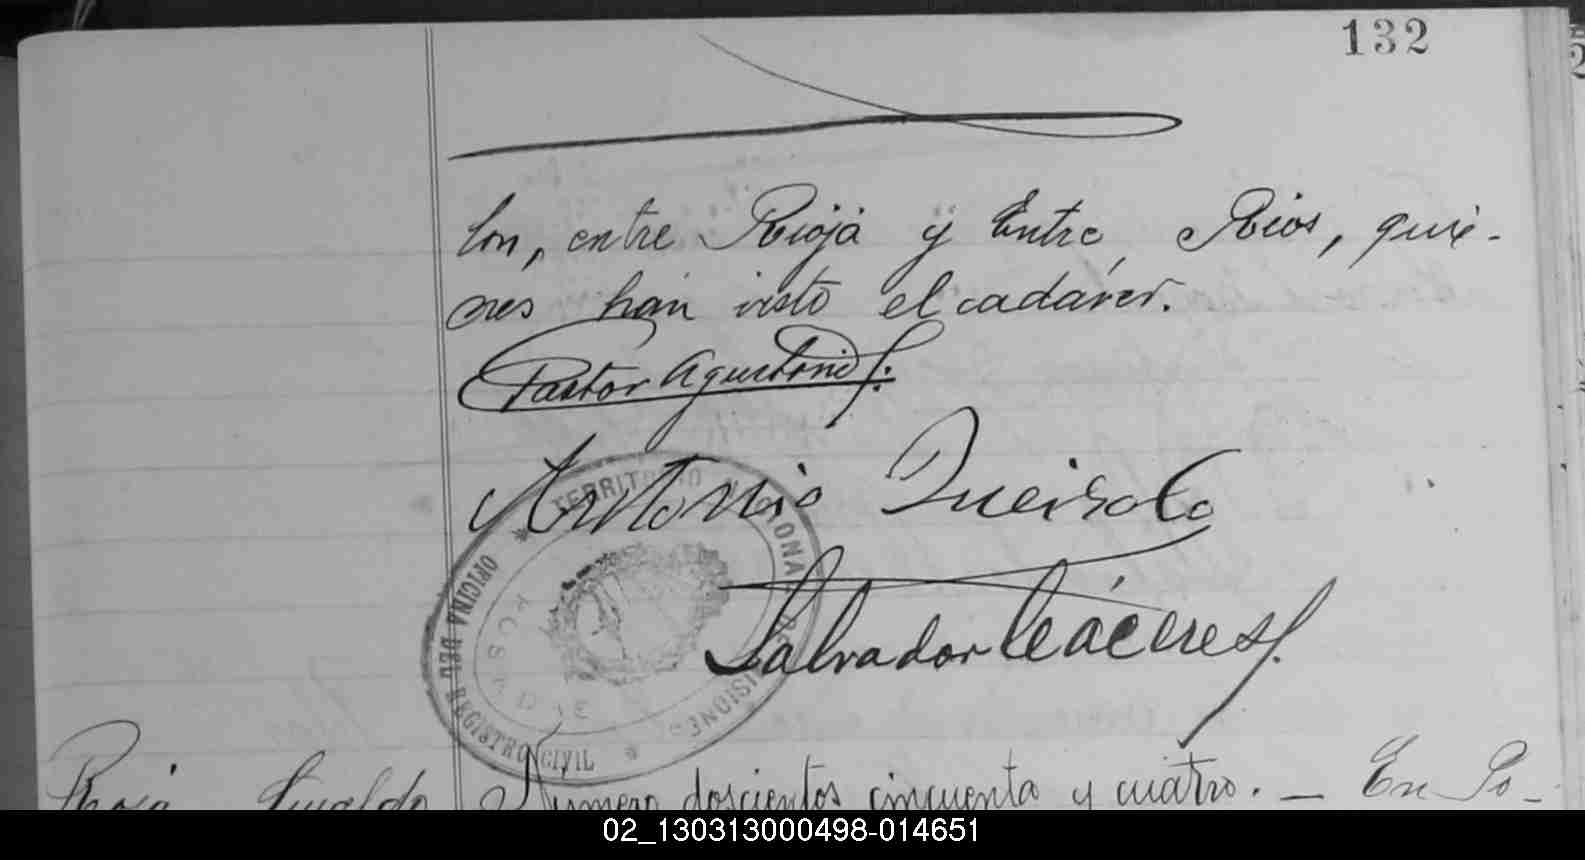 132
lon, entre Rioja y Entre Rios, quie-
nes han visto el cadáver.
Pastor Agustoni
Antonio Queirolo
Salvador Cáceres
OFICINA DEL REGISTRO CIVIL * TERRITORIO NACIONAL DE MISIONES *
POSADAS
Número doscientos cincuenta y cuatro. — En Po-
02_130313000498-014651